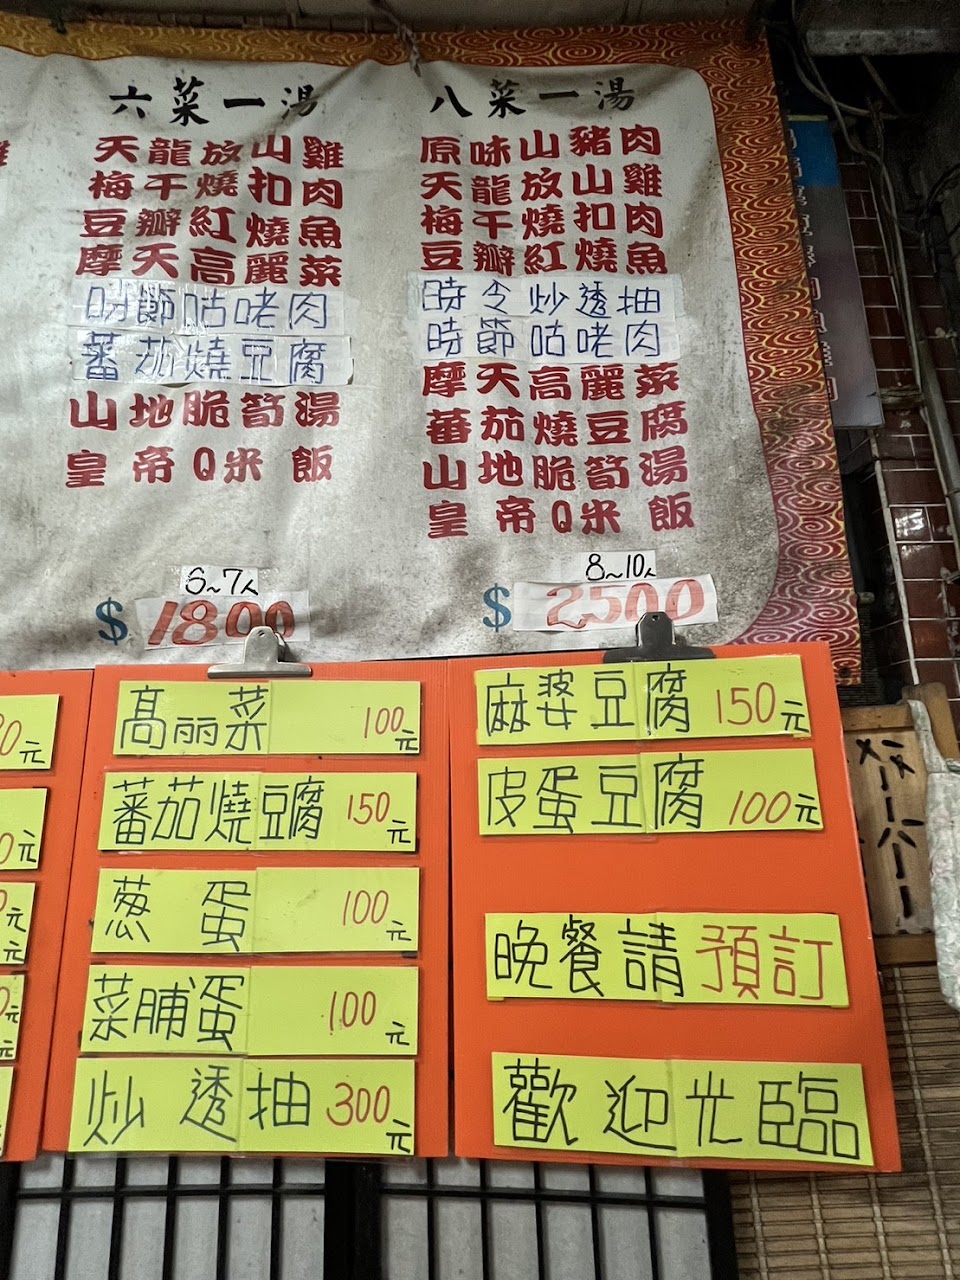 六菜一湯
天龍放山雞
梅干燒扣肉
豆瓣紅燒魚
摩天高麗菜
時節咕咾肉
蕃茄燒豆腐
山地脆筍湯
皇帝Q米飯
6~7人
$1800
八菜一湯
原味山豬肉
天龍放山雞
梅干燒扣肉
豆瓣紅燒魚
時令炒透抽
時節咕咾肉
摩天高麗菜
蕃茄燒豆腐
山地脆筍湯
皇帝Q米飯
8~10人
$2500
元
元
元
元
元
元
高丽菜 100元
蕃茄燒豆腐 150元
葱蛋 100元
菜脯蛋 100元
炒透抽 300元
麻婆豆腐 150元
皮蛋豆腐 100元
晚餐請預訂
歡迎光臨